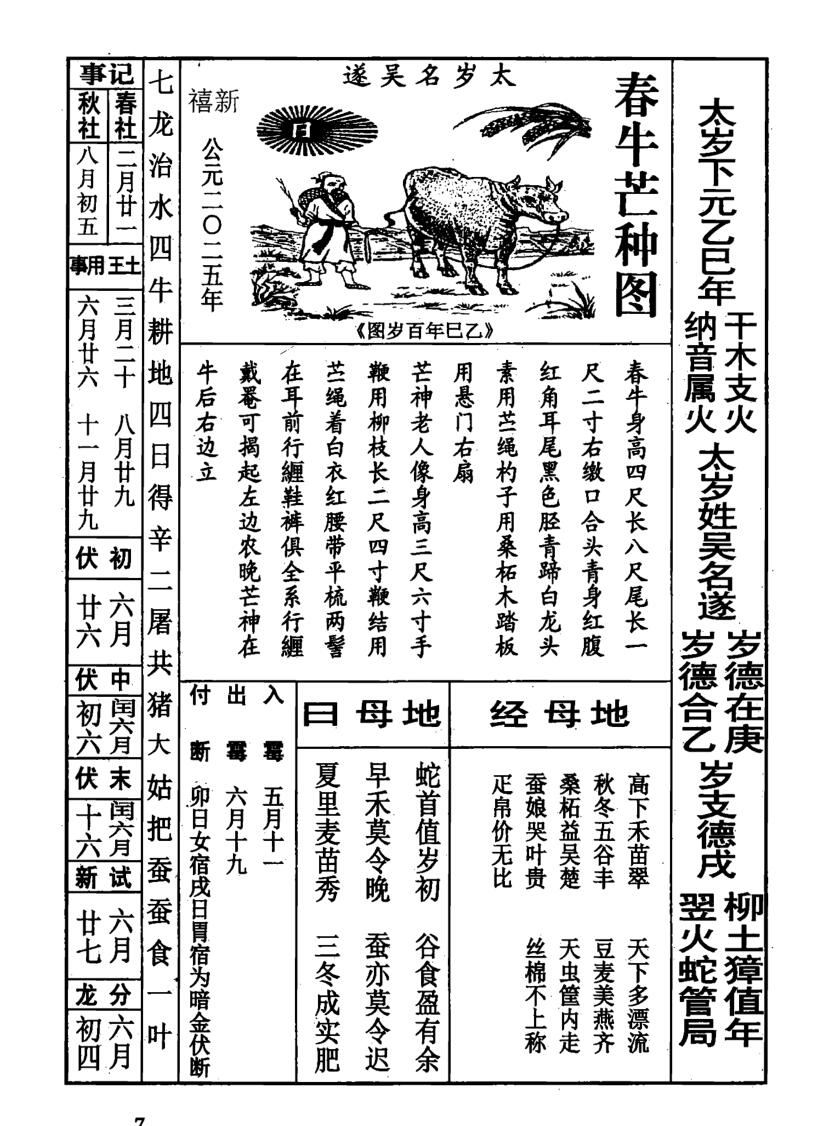 太岁下元乙巳年
干木支火
纳音属火
太岁姓吴名遂
岁德在庚
岁德合乙
岁支德戌
柳土獐值年
翌火蛇管局
春牛芒种图
太岁名吴遂
新禧
日
公元二〇二五年
《乙巳年百岁图》
春牛身高四尺长八尺尾长一
尺二寸右缴口合头青身红腹
红角耳尾黑色胫青蹄白龙头
素用苎绳杓子用桑柘木踏板
用悬门右扇
芒神老人像身高三尺六寸手
鞭用柳枝长二尺四寸鞭结用
苎绳着白衣红腰带平梳两髻
在耳前行纏鞋裤俱全系行纏
戴罨可揭起左边农晚芒神在
牛后右边立
地母经
高下禾苗翠 天下多漂流
秋冬五谷丰 豆麦美燕齐
桑柘益吴楚 天虫筐内走
蚕娘哭叶贵 丝棉不上称
疋帛价无比
地母曰
蛇首值岁初 谷食盈有余
早禾莫令晚 蚕亦莫令迟
夏里麦苗秀 三冬成实肥
入霉 五月十一
出霉 六月十九
付断 卯日女宿戌日胃宿为暗金伏断
七龙治水四牛耕地四日得辛二屠共猪大姑把蚕蚕食一叶
记事
春社
二月廿一
秋社
八月初五
土王用事
三月二十 八月廿九
六月廿六 十一月廿九
初伏
六月
廿六
中伏
闰六月
初六
末伏
闰六月
十六
试新
六月
廿七
分龙
六月
初四
7